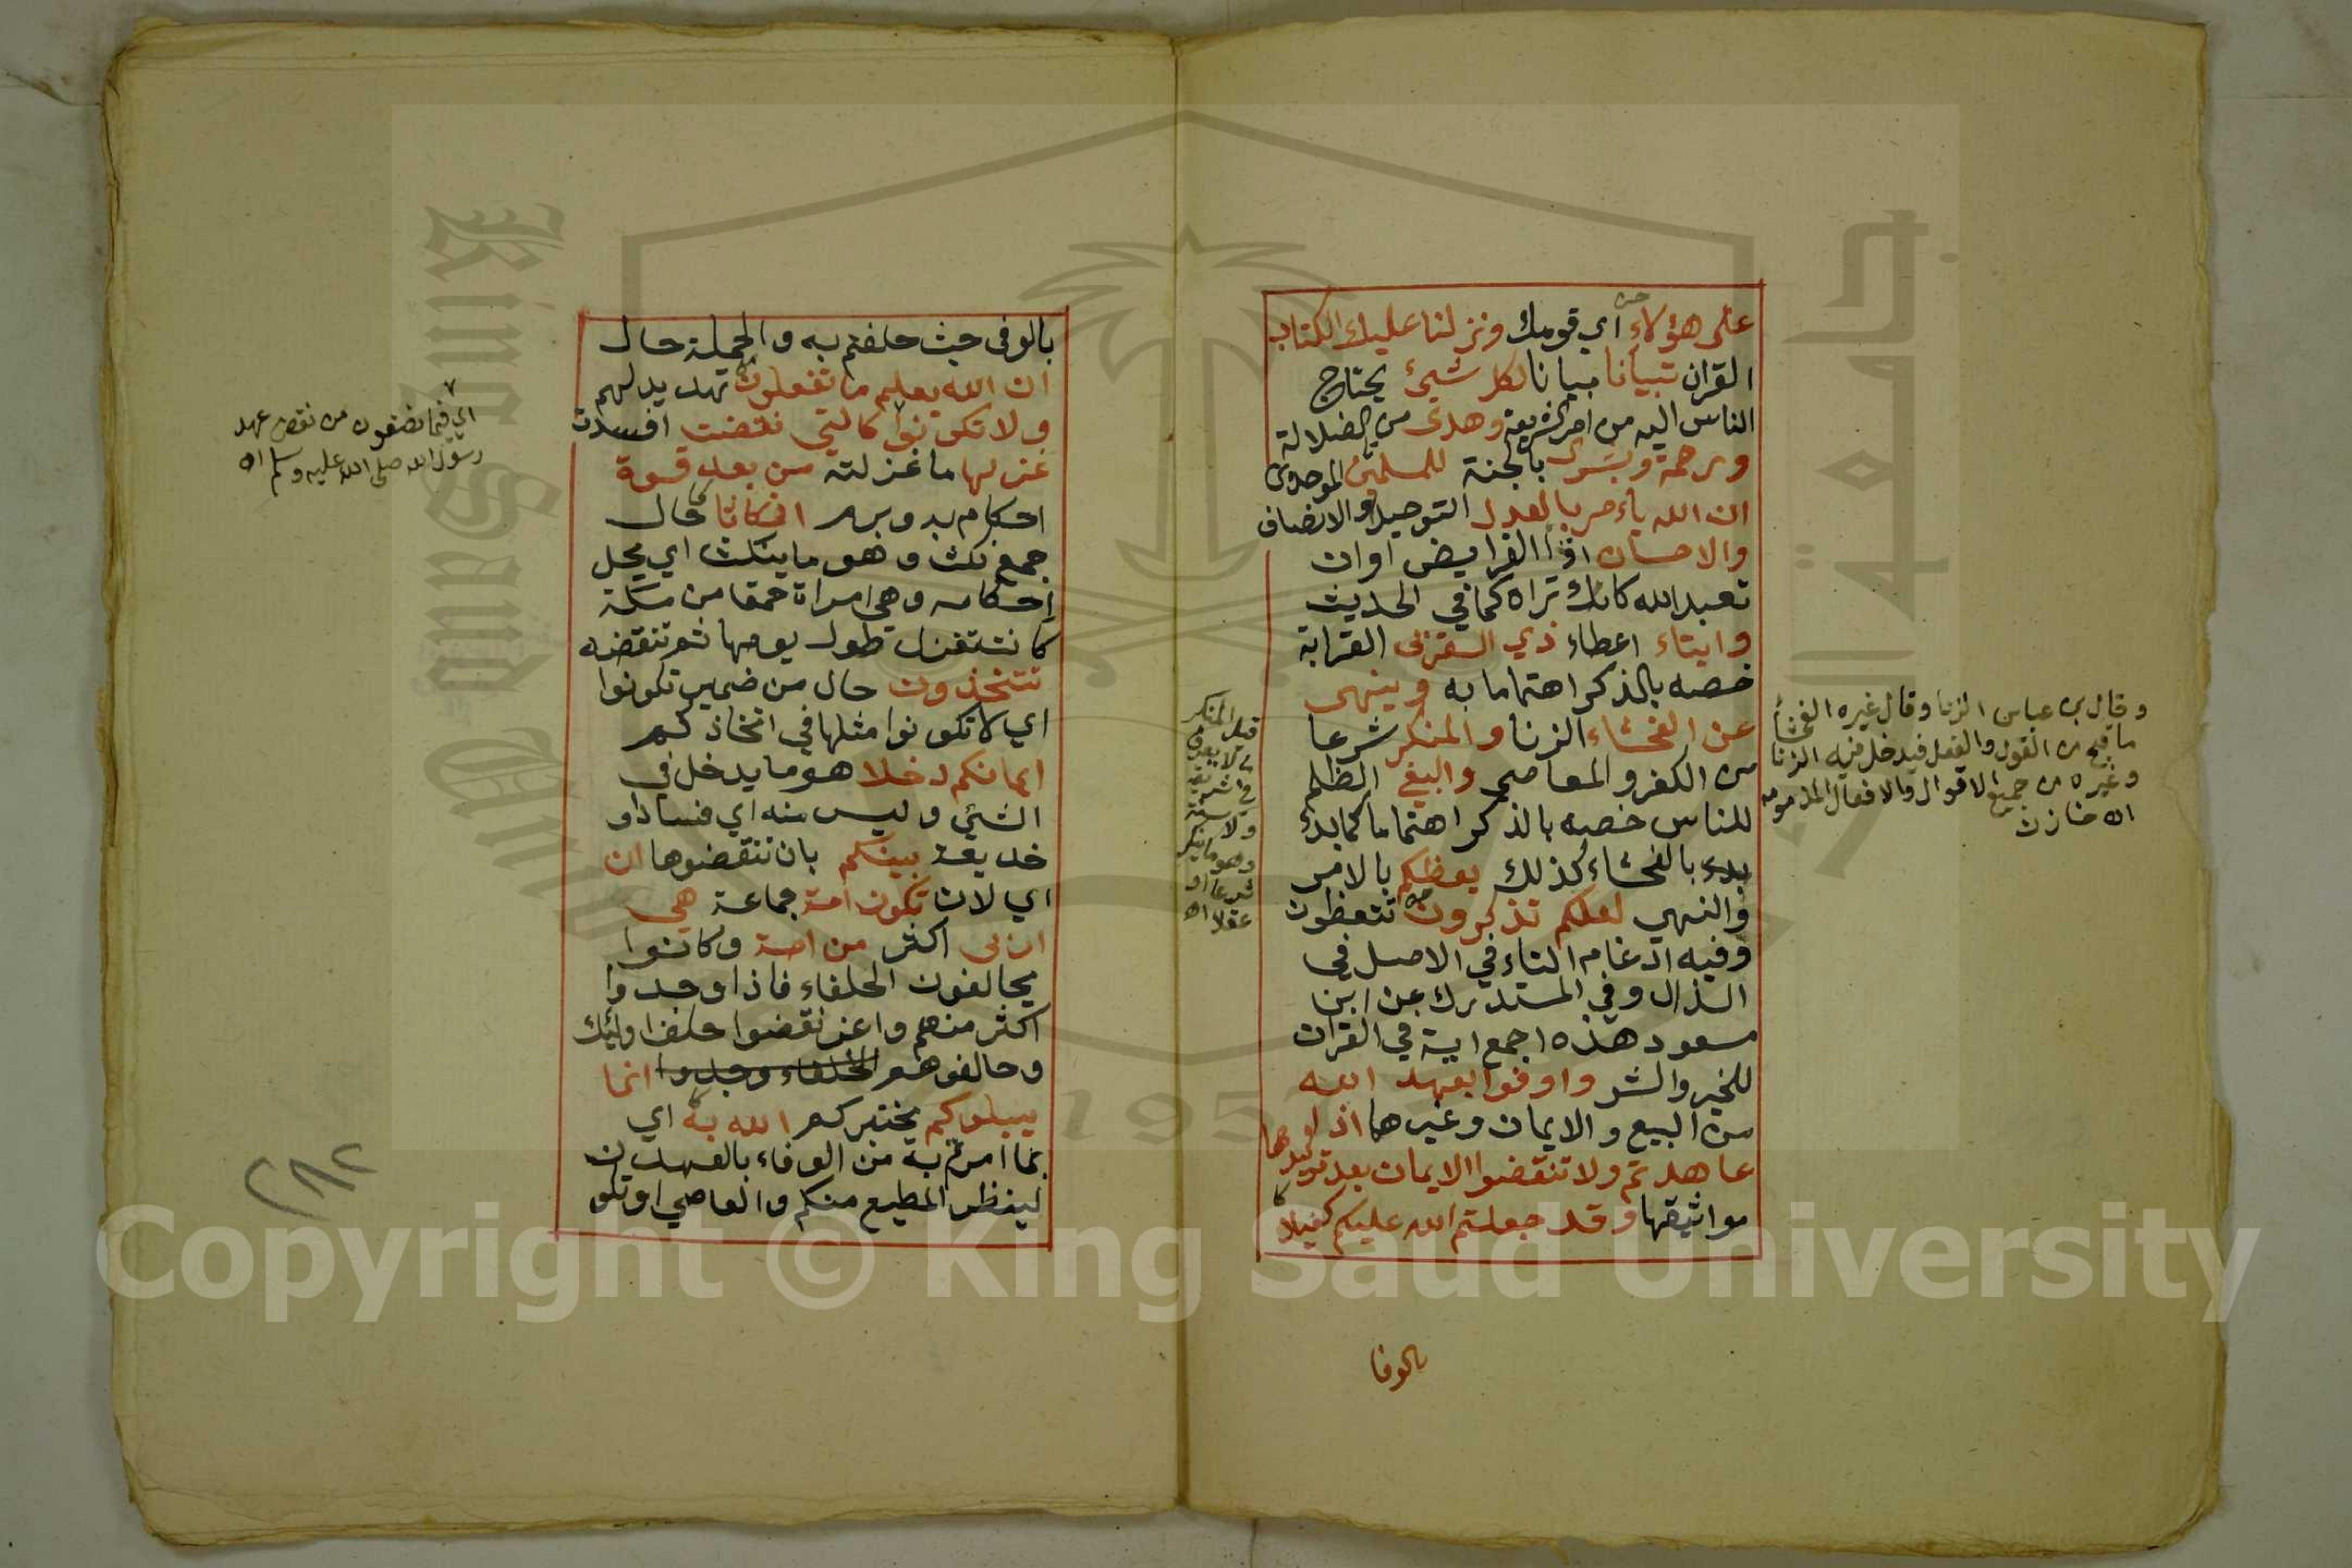 على هؤلاء اي قومك ونزلنا عليك الكتاب
القران تبيانا بيانا لكل شيئ يحتاج
الناس اليه من امر الشريعة وهدى من الضلالة
ورحمة وبشرى بالجنة للمسلمين الموحدين
ان الله يامر بالعدل التوحيد او الانصاف
والاحسان اداا الفرايض او ان
تعبد الله كانك تراه كما في الحديث
وايتاء اعطاء ذي القربى القرابة
خصه بالذكر اهتماما به وينهى
عن الفحشاء الزنا والمنكر شرعا
من الكفر والمعاصي والبغي الظلم
للناس خصه بالذكر اهتماما كما بدئ
بدء بالفحشاء كذلك يعظكم بالامر
والنهي لعلكم تذكرون تتعظون
وفيه ادغام التاء في الاصل في
الذال وفي المستدرك عن ابن
مسعود هذه اجمع اية في القران
للخير والشر واوفوا بعهد الله
من البيع والايمان وغيرها اذا
عاهدتم ولا تنقضوا الايمان بعد توكيدها
مواثيقها وقد جعلتم الله عليكم كفيلا
بالوفا
وقال بن عباس الزنا وقال غيره الفحشا
ما قبح من القول والفعل فيدخل فيه الزنا
وغيره من جميع الاقوال والافعال المذمومة
اه خازن
قيل المنكر
ما لا يعرف
في شريعة
ولا سنة
وهو ما ينكر
شرعا او
عقلا اه
بالوفى حيث حلفتم به والجملة حال
ان الله يعلم ما تفعلون تهديد لهم
ولا تكونوا كالتي نقضت افسدت
غزلها ما غزلته من بعد قوة
احكام به وبرم انكاثا حال
جمع نكث وهو ما ينكث اي يحل
احكامه وهي امراة حمقا من مكة
كانت تغزل طول يومها ثم تنقضه
تتخذون حال من ضمير تكونوا
اي لا تكونوا مثلها في اتخاذكم
ايمانكم دخلا هو ما يدخل في
الشئي وليس منه اي فسادا و
خديعة بينكم بان تنقضوها ان
اي لان تكون امة جماعة هي
اربى اكثر من امة وكانوا
يحالفون الحلفاء فاذا وجدوا
اكثر منهم واعز نقضوا حلف اولئك
وحالفوهم الحلفاء وجدوا انما
يبلوكم يختبركم الله به اي
بما امر به من الوفاء بالعهد
لينظر المطيع منكم والعاصي او تكون
اي فيما تصنعون من نقض عهد
رسول الله صلى الله عليه وسلم اه
٢٨٢
Copyright © King Saud University
King Saud
جامعة
195